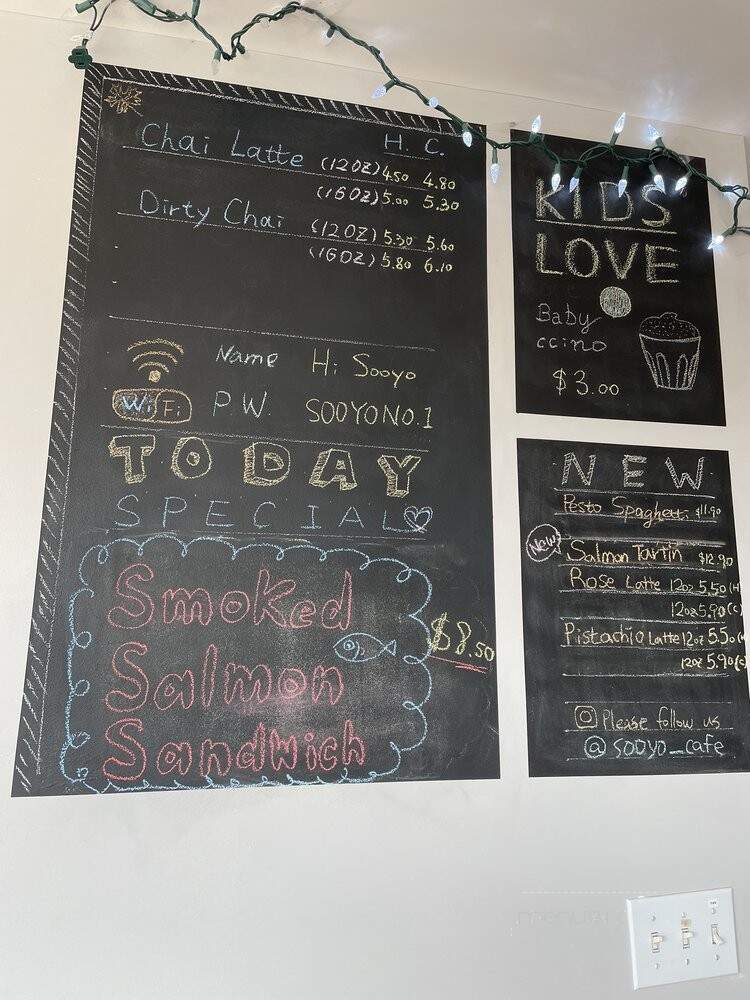 H. C.
Chai Latte (12OZ) 4.50 4.80
(16OZ) 5.00 5.30
Dirty Chai (12OZ) 5.30 5.60
(16OZ) 5.80 6.10
Name Hi Sooyo
WiFi P.W. SOOYONO.1
TODAY
SPECIAL
Smoked
Salmon
Sandwich
$8.50
KIDS
LOVE
Baby
ccino
$3.00
NEW
Pesto Spaghetti $11.90
New!
Salmon Tartin $12.90
Rose Latte 12oz 5.50 (H
12oz 5.90 (C)
Pistachio Latte 12oz 5.50 (H
12oz 5.90 (C
Please follow us
@ sooyo_cafe